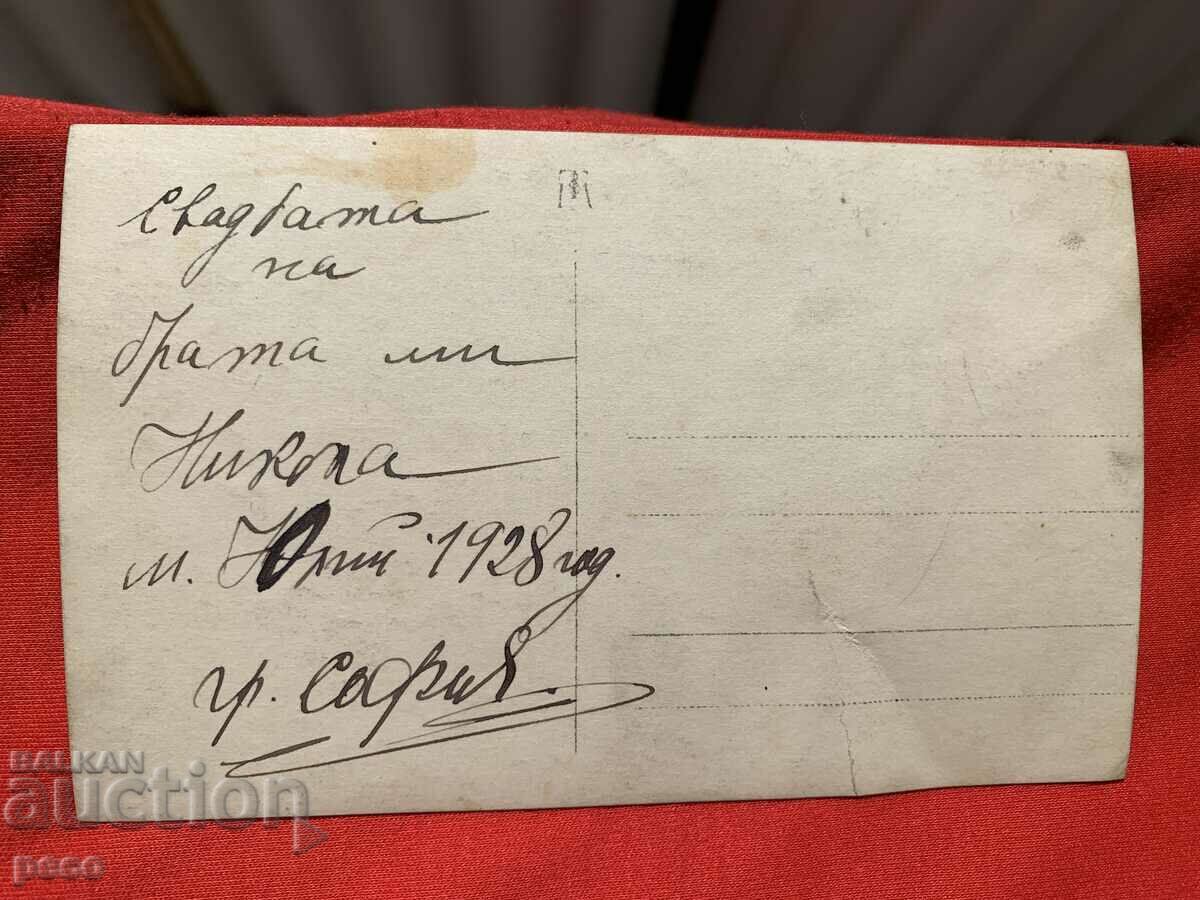 Свадбата
на
брата ми
Никола
м. Юлий 1928 год.
гр. София.
BALKAN
auction
peeo